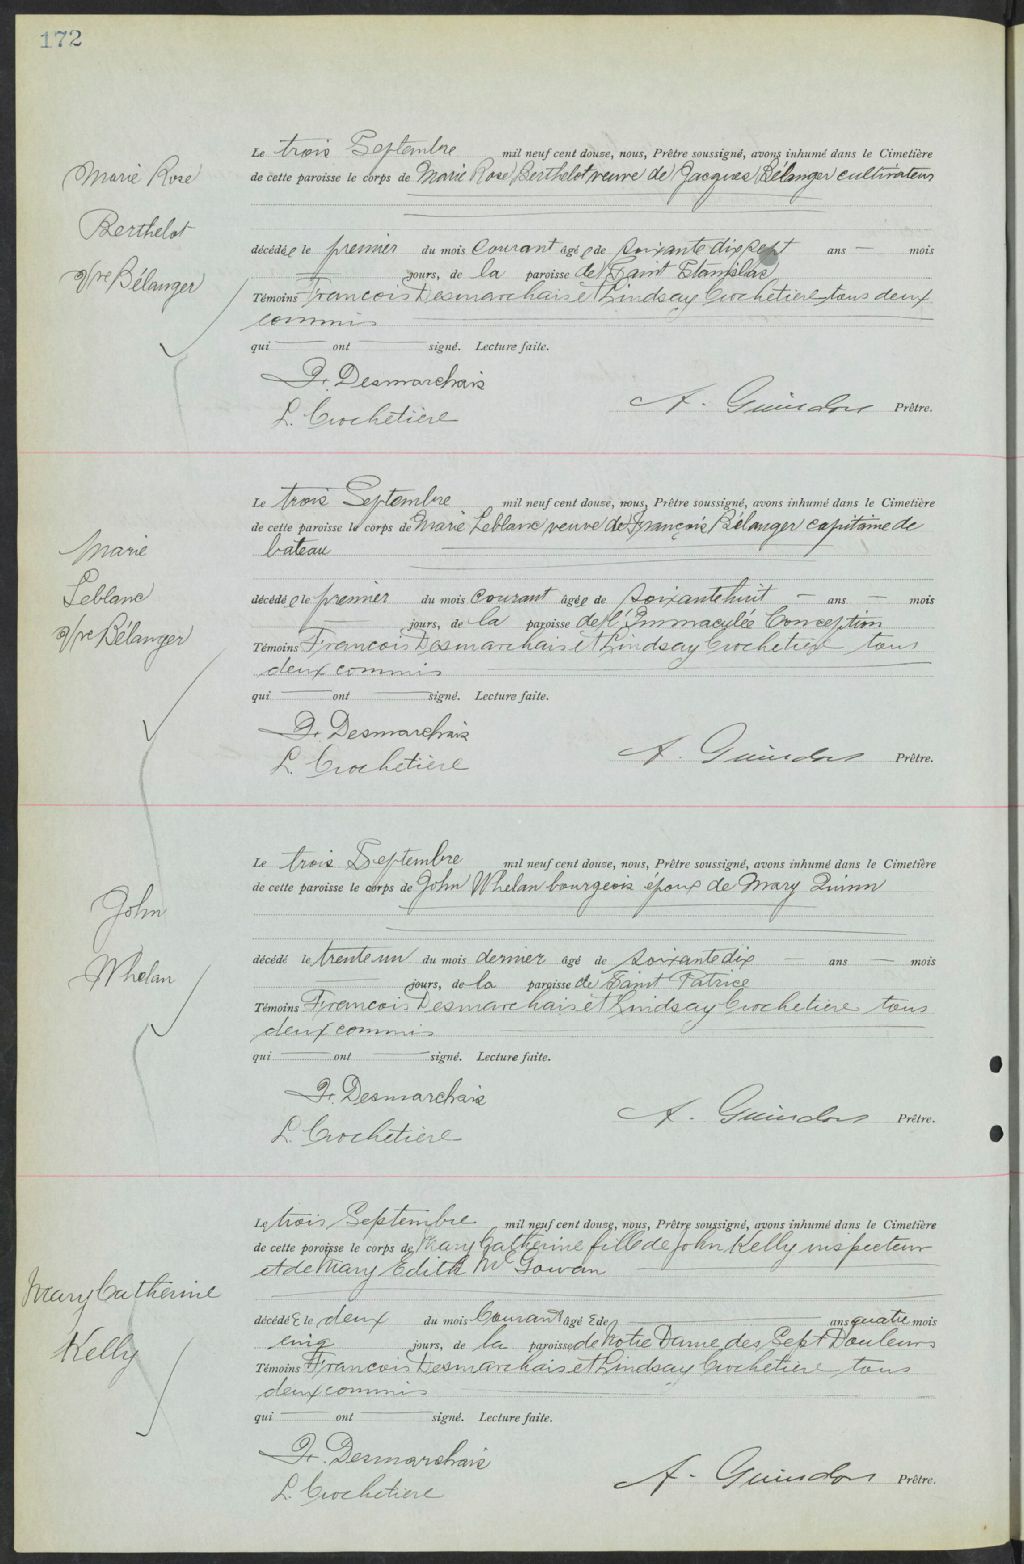 172
Marie Rose
Berthelot
Vve Bélanger
Le trois Septembre mil neuf cent douze, nous, Prêtre soussigné, avons inhumé dans le Cimetière
de cette paroisse le corps de Marie Rose Berthelot veuve de Jacques Bélanger cultivateur
décédée le premier du mois courant âgée de soixante dix sept ans — mois
jours, de la paroisse de Saint Stanislas
Témoins Francois Desmarchais et Lindsay Crochetiere tous deux
commis
qui — ont — signé. Lecture faite.
Fr. Desmarchais
L. Crochetière
A. Guindon Prêtre.
Marie
Leblanc
Vve Bélanger
Le trois Septembre mil neuf cent douze, nous, Prêtre soussigné, avons inhumé dans le Cimetière
de cette paroisse le corps de Marie Leblanc veuve de François Bélanger capitaine de
bateau
décédée le premier du mois courant âgée de soixante huit — ans — mois
jours, de la paroisse de l'Immaculée Conception
Témoins Francois Desmarchais et Lindsay Crochetiere tous
deux commis
qui — ont — signé. Lecture faite.
Fr. Desmarchais
L. Crochetière
A. Guindon Prêtre.
John
Whelan
Le trois Septembre mil neuf cent douze, nous, Prêtre soussigné, avons inhumé dans le Cimetière
de cette paroisse le corps de John Whelan bourgeois époux de Mary Quinn
décédé le trente un du mois dernier âgé de soixante dix — ans — mois
jours, de la paroisse de Saint Patrice
Témoins Francois Desmarchais et Lindsay Crochetiere tous
deux commis
qui — ont — signé. Lecture faite.
Fr. Desmarchais
L. Crochetière
A. Guindon Prêtre.
Mary Catherine
Kelly
Le trois Septembre mil neuf cent douze, nous, Prêtre soussigné, avons inhumé dans le Cimetière
de cette paroisse le corps de Mary Catherine fille de John Kelly inspecteur
et de Mary Edith McGowan
décédée le deux du mois Courant âgée de — ans quatre mois
cinq jours, de la paroisse de Notre Dame des Sept Douleurs
Témoins Francois Desmarchais et Lindsay Crochetiere tous
deux commis
qui — ont — signé. Lecture faite.
Fr. Desmarchais
L. Crochetiere
A. Guindon Prêtre.